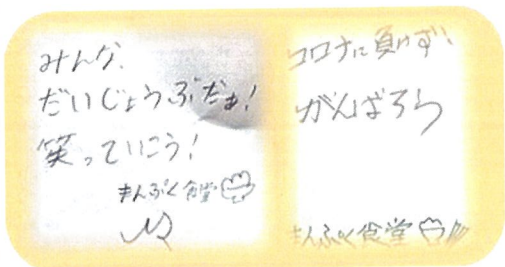 みんな、
だいじょうぶだぁ!
笑っていこう!
まんぷく食堂
コロナに負けず、
がんばろう
まんぷく食堂